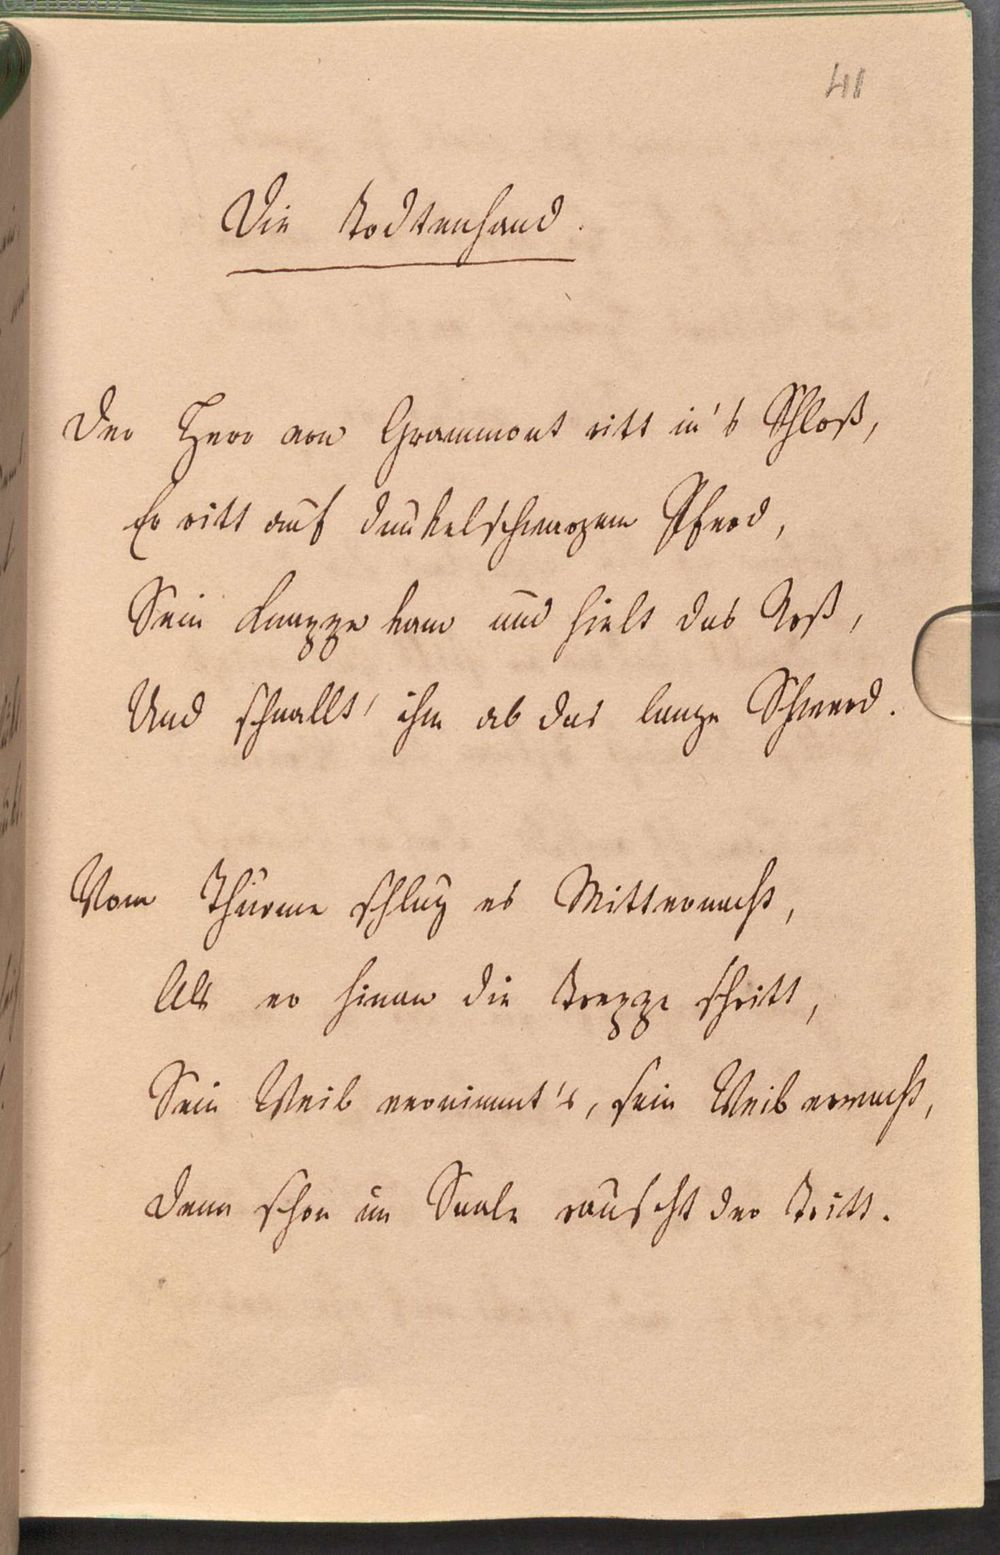 41
Die Todtenhand.
Der Herr von Grammont ritt in's Schloß,
Er ritt auf dunkelschwarzem Pferd,
Sein Knappe kam und hielt das Roß,
Und schnallt' ihm ab das lange Schwerd.
Vom Thurme schlug es Mitternacht,
Als er hinan die Treppe schritt,
Sein Weib vernimmt's, sein Weib erwacht,
Denn schon im Saale rauscht der Tritt.